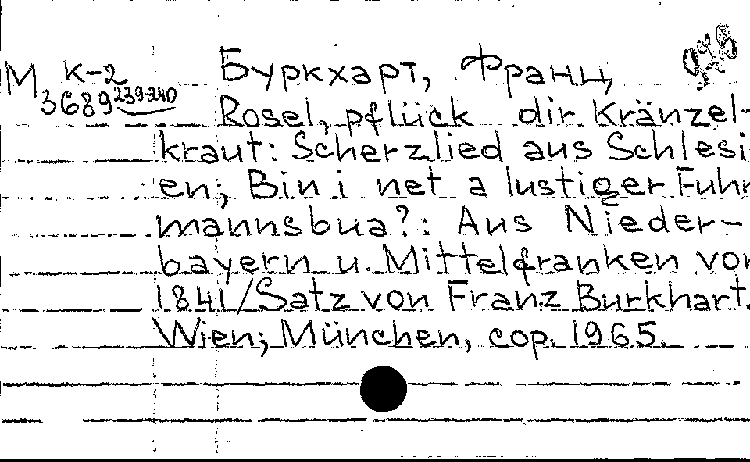 М К-2 Буркхарт, Франц
3689 239-240 Rosel, pflück dir Kränzel-
kraut: Scherzlied aus Schlesi
en; Bin i net a lustiger Fuhr
mannsbua?: Aus Nieder-
bayern u. Mittelfranken vor
1841/Satz von Franz Burkhart.
Wien; München, cop. 1965.